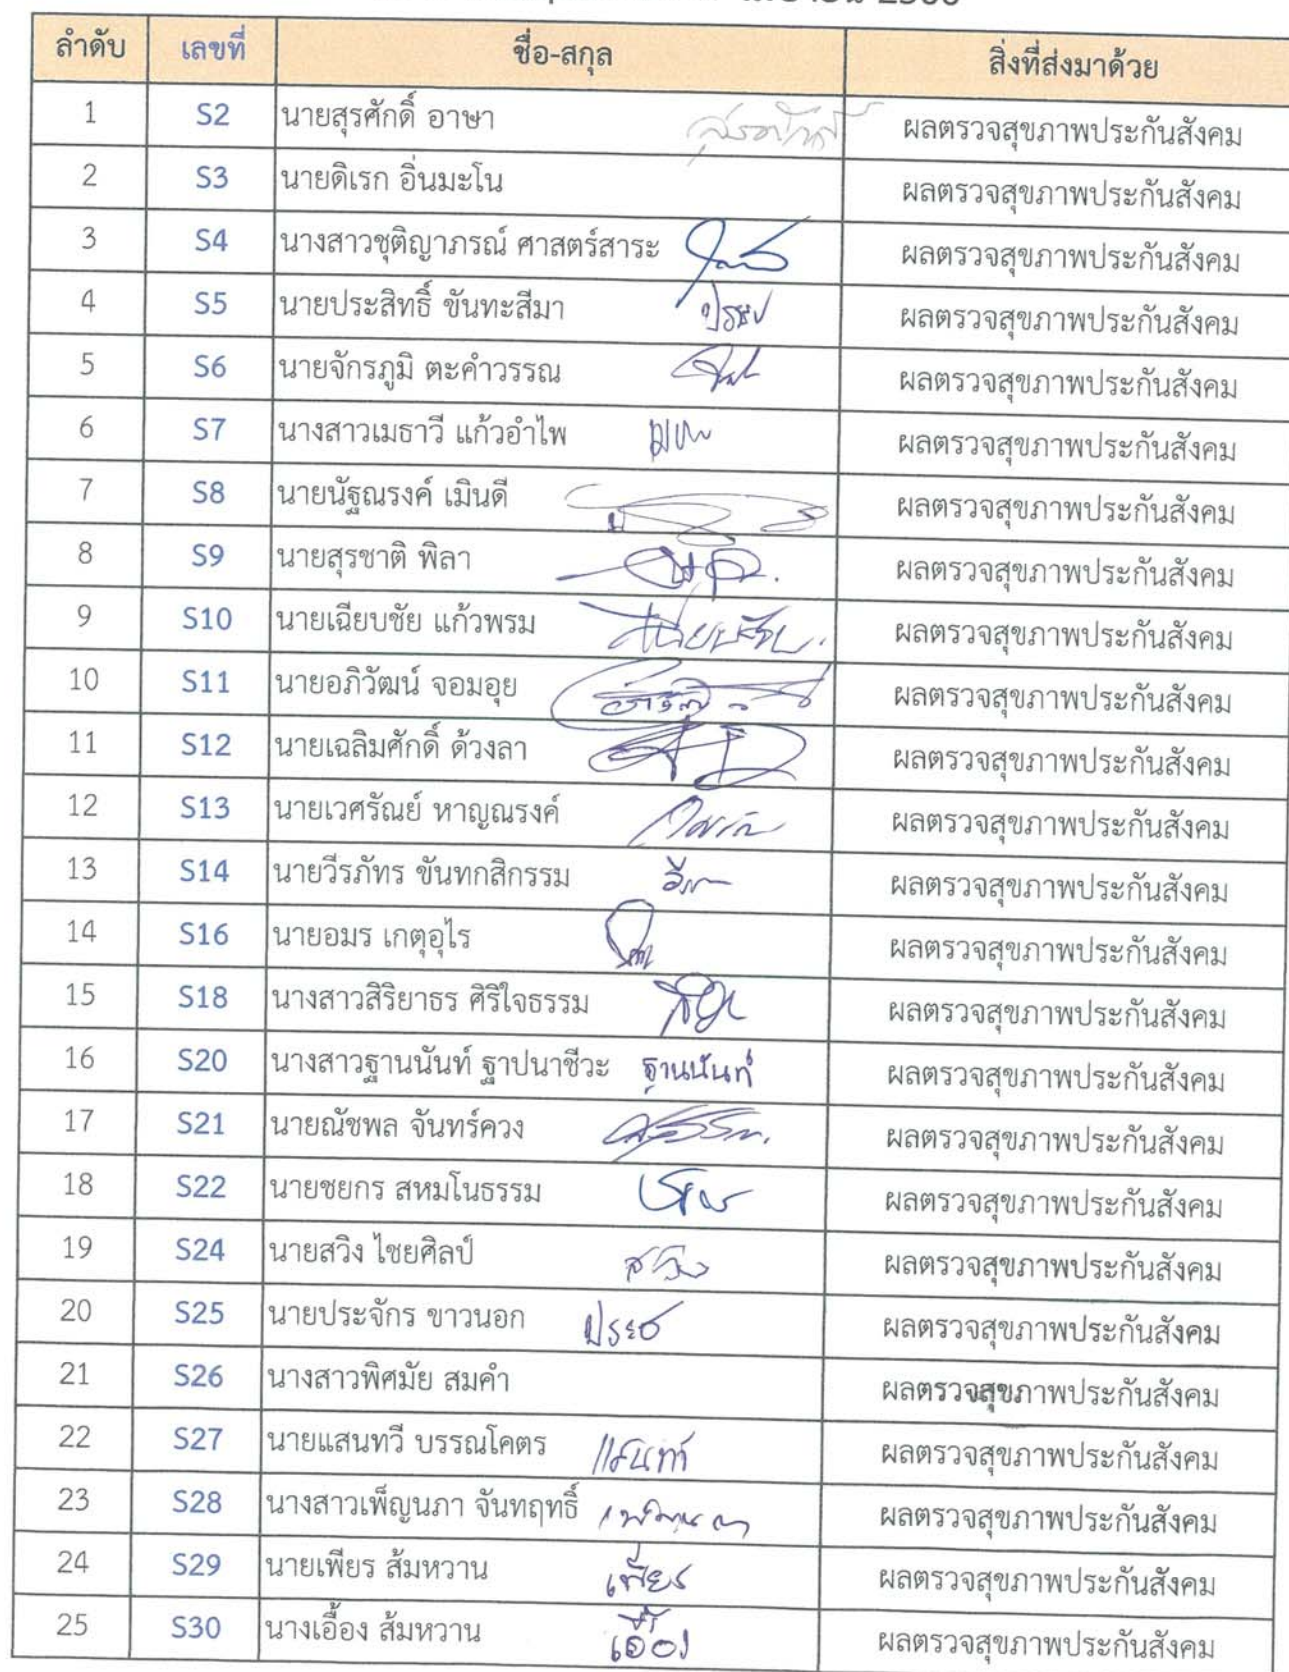 2566
ลำดับ เลขที่ ชื่อ-สกุล สิ่งที่ส่งมาด้วย
1 S2 นายสุรศักดิ์ อาษา สุรศักดิ์ ผลตรวจสุขภาพประกันสังคม
2 S3 นายดิเรก อิ่นมะโน ผลตรวจสุขภาพประกันสังคม
3 S4 นางสาวชุติญาภรณ์ ศาสตร์สาระ ผลตรวจสุขภาพประกันสังคม
4 S5 นายประสิทธิ์ ขันทะสีมา ผลตรวจสุขภาพประกันสังคม
5 S6 นายจักรภูมิ ตะคำวรรณ ผลตรวจสุขภาพประกันสังคม
6 S7 นางสาวเมธาวี แก้วอำไพ ผลตรวจสุขภาพประกันสังคม
7 S8 นายนัฐณรงค์ เมินดี ผลตรวจสุขภาพประกันสังคม
8 S9 นายสุรชาติ พิลา ผลตรวจสุขภาพประกันสังคม
9 S10 นายเฉียบชัย แก้วพรม ผลตรวจสุขภาพประกันสังคม
10 S11 นายอภิวัฒน์ จอมอุย ผลตรวจสุขภาพประกันสังคม
11 S12 นายเฉลิมศักดิ์ ด้วงลา ผลตรวจสุขภาพประกันสังคม
12 S13 นายเวศรัณย์ หาญณรงค์ ผลตรวจสุขภาพประกันสังคม
13 S14 นายวีรภัทร ขันทกสิกรรม ผลตรวจสุขภาพประกันสังคม
14 S16 นายอมร เกตุอุไร ผลตรวจสุขภาพประกันสังคม
15 S18 นางสาวสิริยาธร ศิริใจธรรม ผลตรวจสุขภาพประกันสังคม
16 S20 นางสาวฐานนันท์ ฐาปนาชีวะ ฐานนันท์ ผลตรวจสุขภาพประกันสังคม
17 S21 นายณัชพล จันทร์ควง ผลตรวจสุขภาพประกันสังคม
18 S22 นายชยกร สหมโนธรรม ผลตรวจสุขภาพประกันสังคม
19 S24 นายสวิง ไชยศิลป์ สวิง ผลตรวจสุขภาพประกันสังคม
20 S25 นายประจักร ขาวนอก ผลตรวจสุขภาพประกันสังคม
21 S26 นางสาวพิศมัย สมคำ ผลตรวจสุขภาพประกันสังคม
22 S27 นายแสนทวี บรรณโคตร ผลตรวจสุขภาพประกันสังคม
23 S28 นางสาวเพ็ญนภา จันทฤทธิ์ ผลตรวจสุขภาพประกันสังคม
24 S29 นายเพียร ส้มหวาน เพียร ผลตรวจสุขภาพประกันสังคม
25 S30 นางเอื้อง ส้มหวาน เอื้อง ผลตรวจสุขภาพประกันสังคม